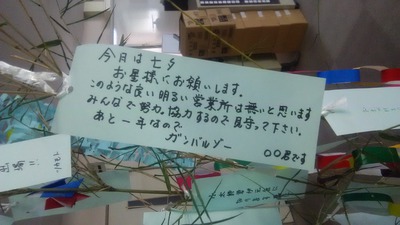 今月は七夕
お星様にお願いします。
このような良い明るい営業所は無いと思います
みんなで努力、協力するので見守って下さい。
あと一年なので
ガンバルゾー
〇〇君です
出場!!